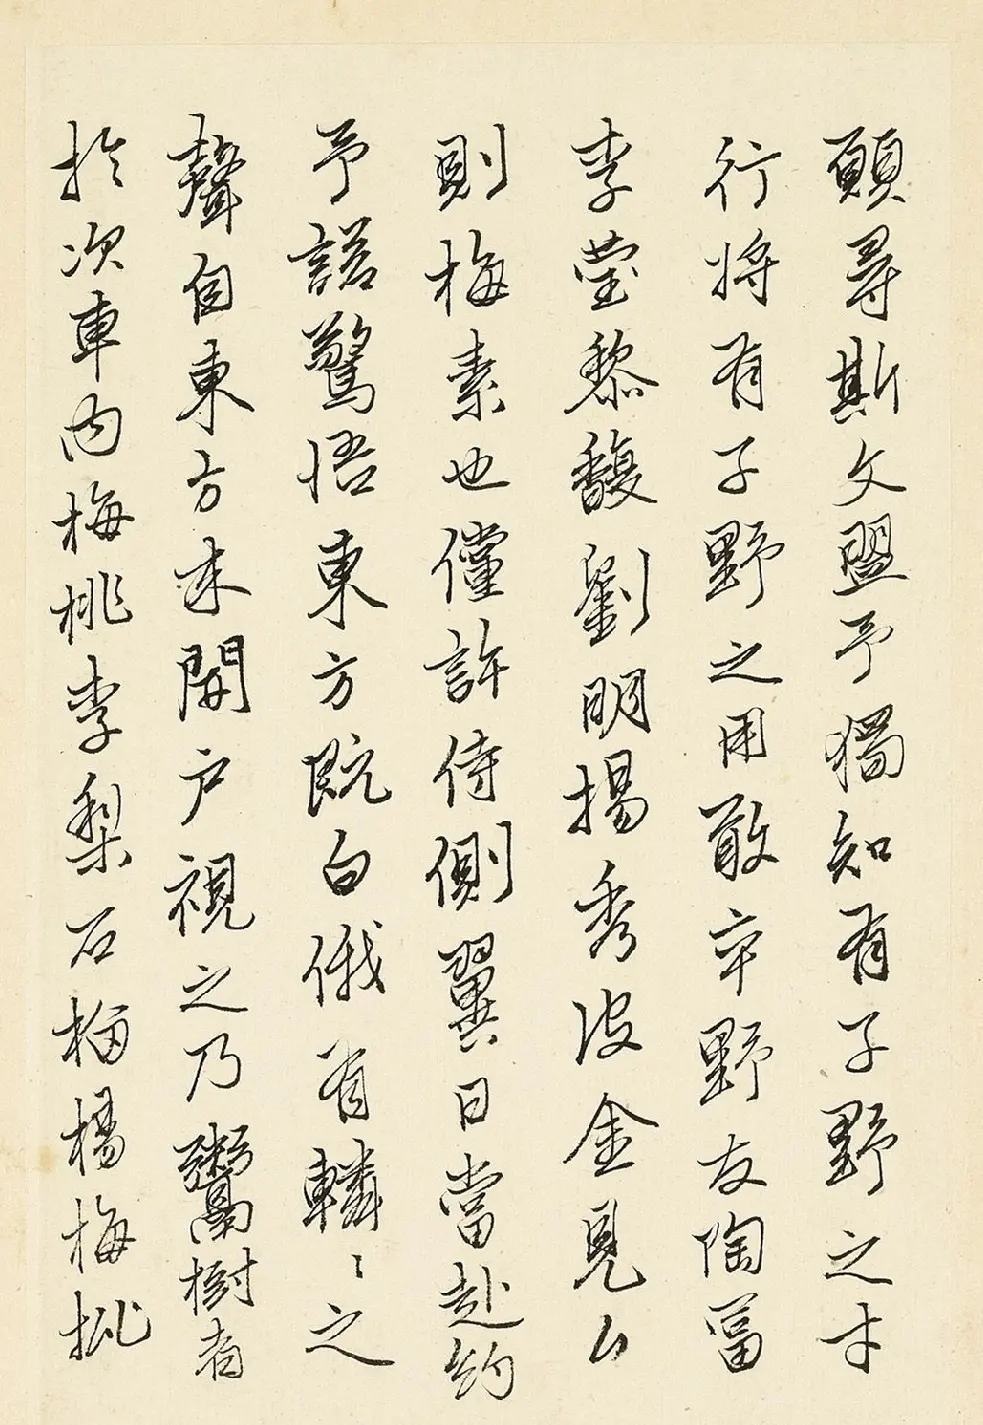 願尋斯文盟予獨知有子野之才
行將有子野之用敢卒野友陶富
李瑩黎馥劉明揚秀波金見公
則梅素也儻許侍側翼日當赴約
予諾驚悟東方既白俄有轔〻之
聲自東方來開戶視之乃鬻樹者
於次車內梅桃李梨石榴楊梅